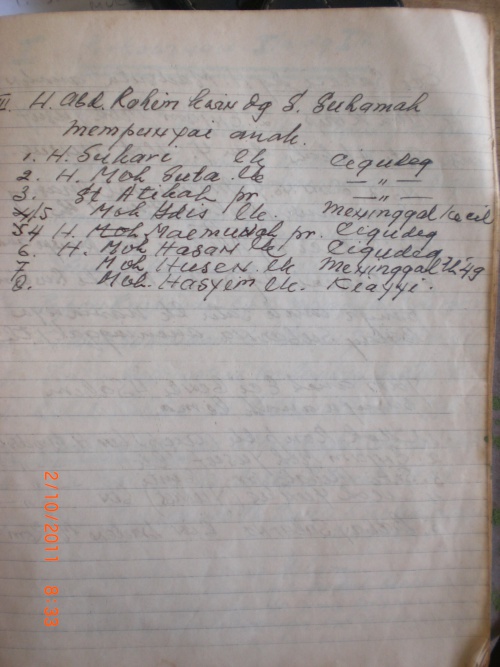 III. H. Abd. Rohim kawin dg S. Suhamah
mempunyai anak.
1. H. Suhari lk Cigudeg
2. H. Moh Suta lk — " —
3. St Atikah pr.
4/5 Moh Idis lk. meninggal kecil
54 H. Moh Maemunah pr. Cigudeg
6. H. Moh Hasan lk Cigudeg
7 Moh Husen lk Meninggal th '49
8. Moh. Hasyim lk. Kiayyi.
2/10/2011 8:33